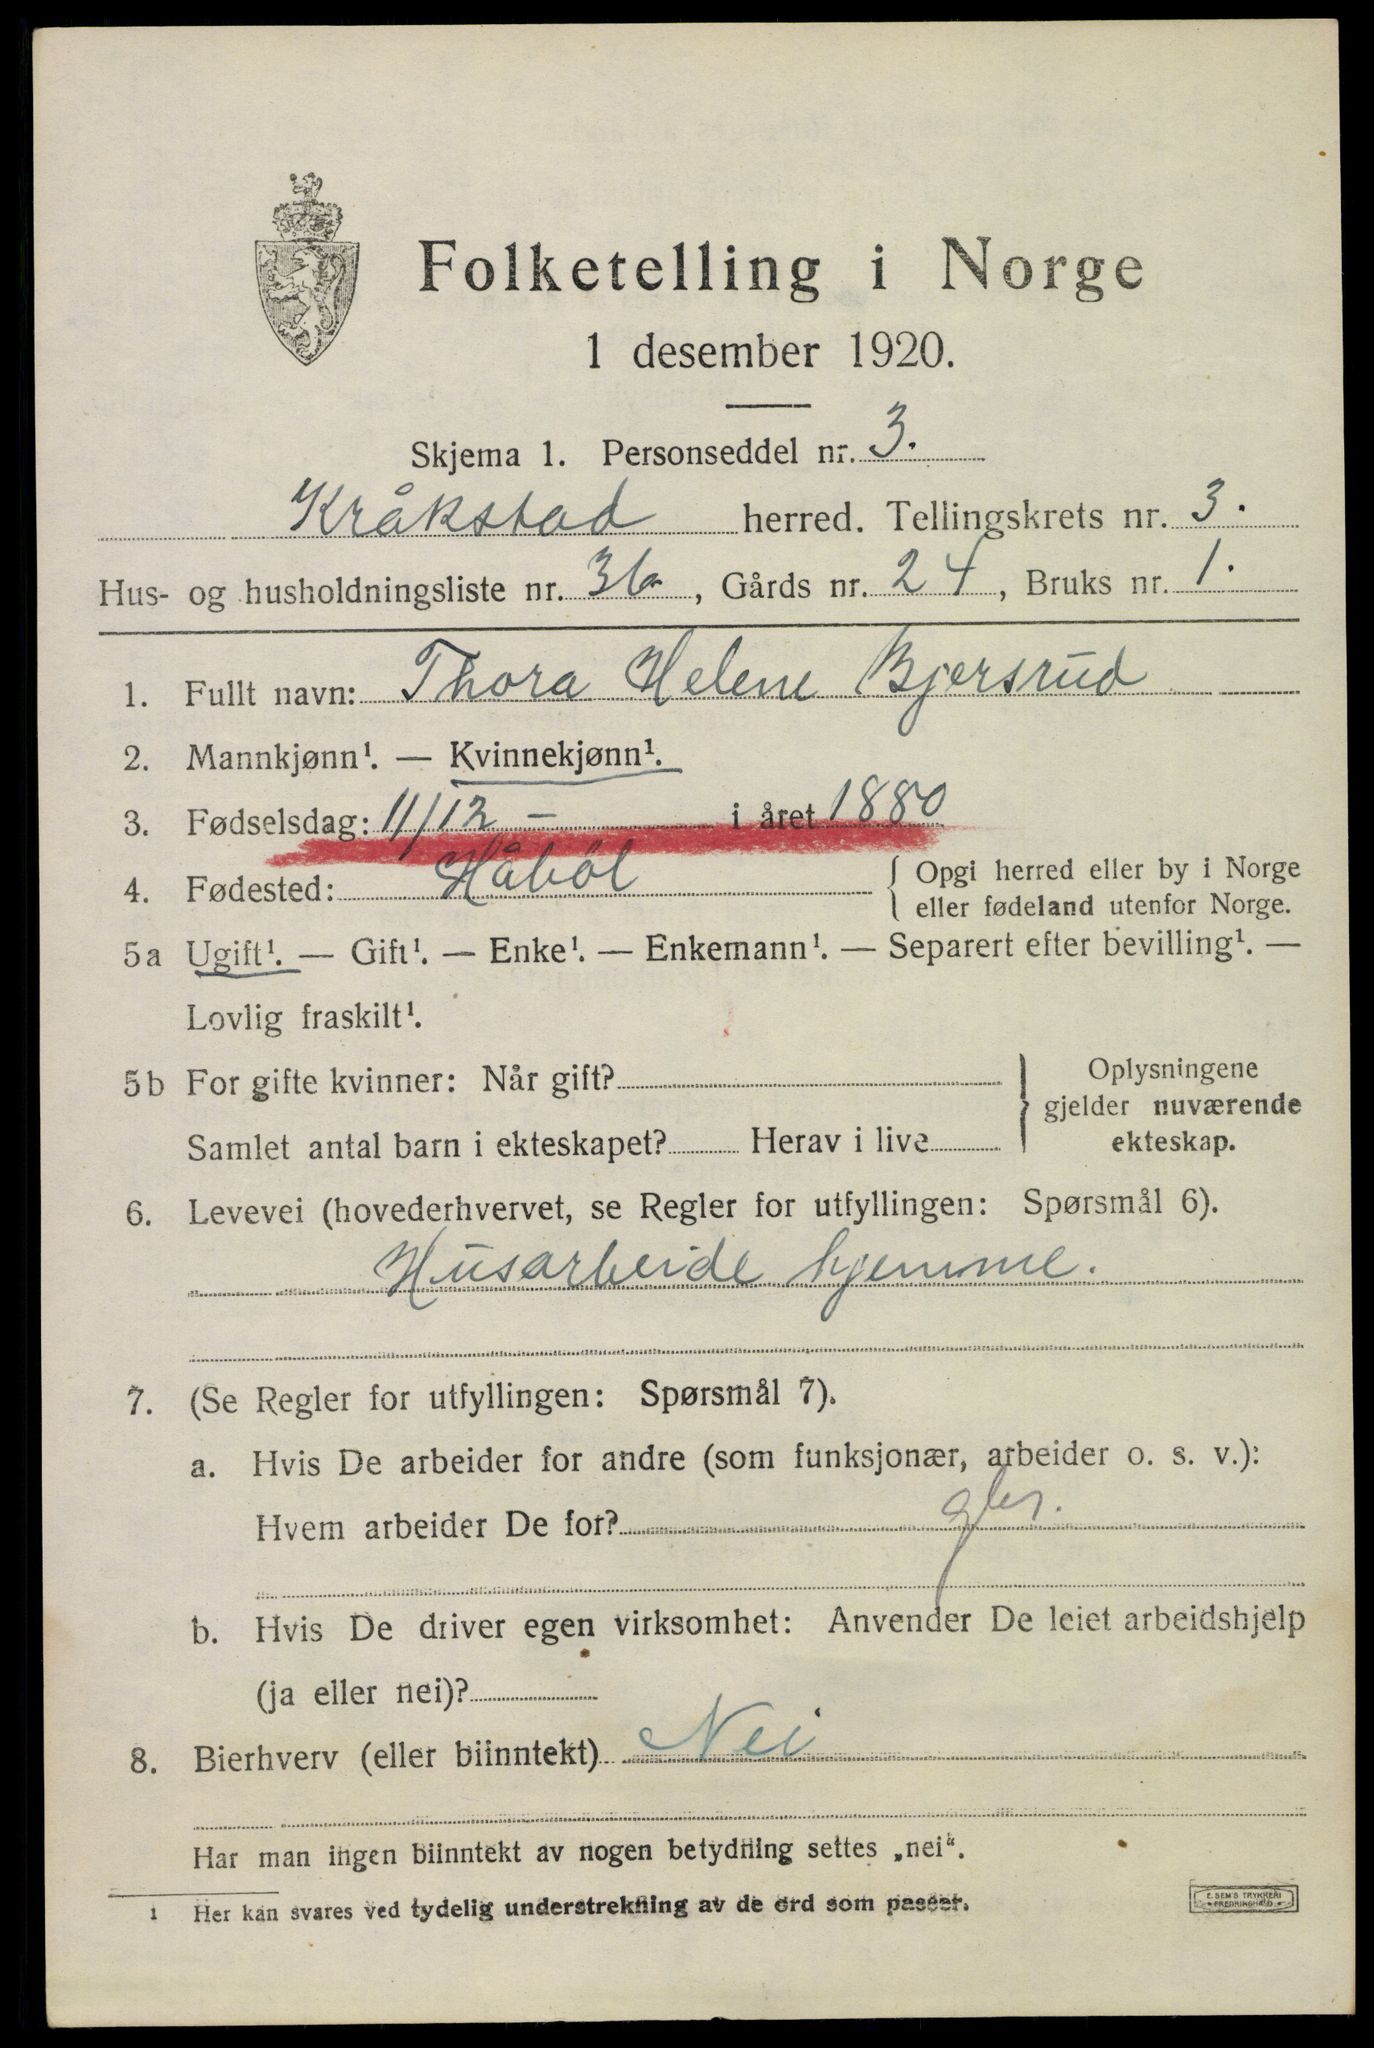 Folketelling i Norge
1 desember 1920.
Skjema 1. Personseddel nr. 3.
Kråkstad herred. Tellingskrets nr. 3.
Hus- og husholdningsliste nr. 36, Gårds nr. 24, Bruks nr. 1.
1. Fullt navn: Thora Helene Bjersrud
2. Mannkjønn¹. — Kvinnekjønn¹.
3. Fødselsdag: 11/12 – i året 1880
4. Fødested: Håbøl { Opgi herred eller by i Norge
eller fødeland utenfor Norge.
5a Ugift¹. — Gift¹. — Enke¹. — Enkemann¹. — Separert efter bevilling¹. —
Lovlig fraskilt¹.
5b For gifte kvinner: Når gift?
Samlet antal barn i ekteskapet? Herav i live
} Oplysningene
gjelder nuværende
ekteskap.
6. Levevei (hovederhvervet, se Regler for utfyllingen: Spørsmål 6).
Husarbeide hjemme.
7. (Se Regler for utfyllingen: Spørsmål 7).
a. Hvis De arbeider for andre (som funksjonær, arbeider o. s. v.):
Hvem arbeider De for?
b. Hvis De driver egen virksomhet: Anvender De leiet arbeidshjelp
(ja eller nei)?
8. Bierhverv (eller biinntekt) Nei
Har man ingen biinntekt av nogen betydning settes „nei“.
1 Her kan svares ved tydelig understrekning av de ord som passer.
E. SEM'S TRYKKERI
FREDRIKSHALD